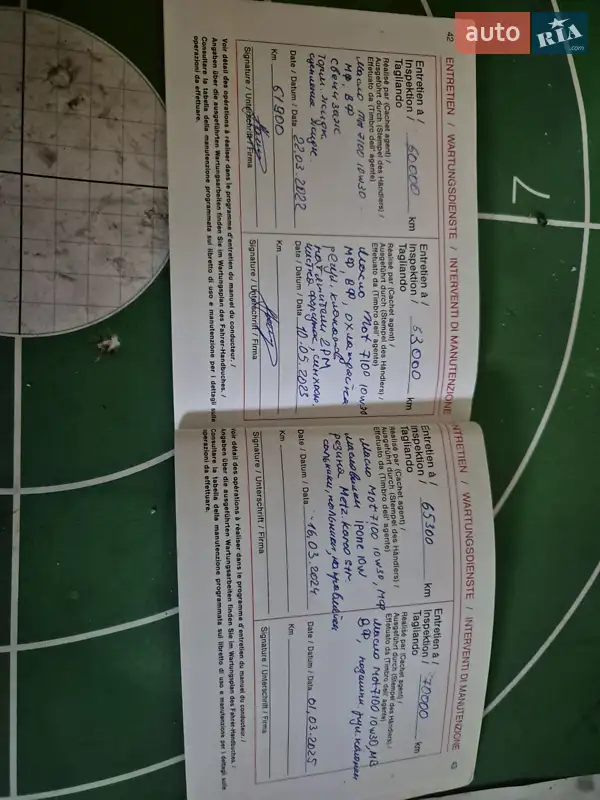 auto RIA.com
42
ENTRETIEN / WARTUNGSDIENSTE / INTERVENTI DI MANUTENZIONE
Entretien à /
Inspektion /
Tagliando
60000 km
Réalisé par (Cachet agent) /
Ausgeführt durch (Stempel des Händlers) /
Effetuato da (Timbro dell' agente)
Масло Mot 7100 10w30
МФ, ВФ
Date / Datum / Data 22.03.2022
Km 61900
Signature / Unterschrift / Firma
Entretien à /
Inspektion /
Tagliando
63000 km
Réalisé par (Cachet agent) /
Ausgeführt durch (Stempel des Händlers) /
Effetuato da (Timbro dell' agente)
Масло Mot 7100 10w30
МФ, ВФ,
Date / Datum / Data 10.05.2023
Km
Signature / Unterschrift / Firma
Voir détail des opérations à réaliser dans le programme d'entretien du manuel du conducteur. /
Angaben über die ausgeführten Wartungsarbeiten finden Sie im Wartungsplan des Fahrer-Handbuches. /
Consultare la tabella della manutenzione programmata sul libretto di uso e manutenzione per i dettagli sulle
operazioni da effettuare.
ENTRETIEN / WARTUNGSDIENSTE / INTERVENTI DI MANUTENZIONE
43
Entretien à /
Inspektion /
Tagliando
65300 km
Réalisé par (Cachet agent) /
Ausgeführt durch (Stempel des Händlers) /
Effetuato da (Timbro dell' agente)
Масло Mot 7100 10w30, МФ
ipone 10w
резина Metz Karoo Str.
Date / Datum / Data 16.03.2024
Km
Signature / Unterschrift / Firma
Entretien à /
Inspektion /
Tagliando
70000 km
Réalisé par (Cachet agent) /
Ausgeführt durch (Stempel des Händlers) /
Effetuato da (Timbro dell' agente)
Масло Mot 7100 10w30, МЗ
ВФ,
Date / Datum / Data 01.03.2025
Km
Signature / Unterschrift / Firma
Voir détail des opérations à réaliser dans le programme d'entretien du manuel du conducteur. /
Angaben über die ausgeführten Wartungsarbeiten finden Sie im Wartungsplan des Fahrer-Handbuches. /
Consultare la tabella della manutenzione programmata sul libretto di uso e manutenzione per i dettagli sulle
operazioni da effettuare.
7